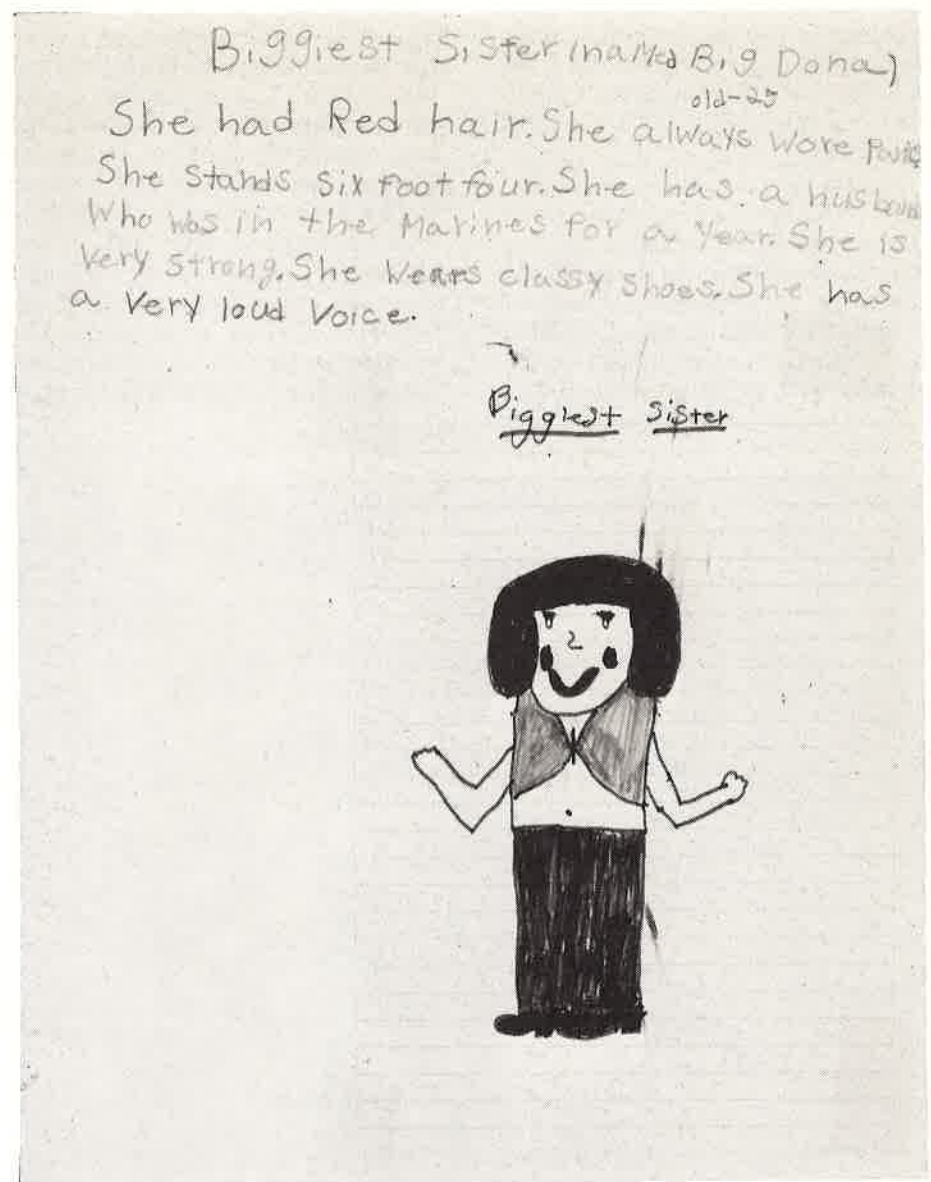 Biggiest Sister (named Big Dona)
old-25
She had Red hair. She always wore Pants
She stands six foot four. She has a husband
Who was in the Marines for a year. She is
very strong. She wears classy shoes. She has
a very loud voice.
Biggiest Sister